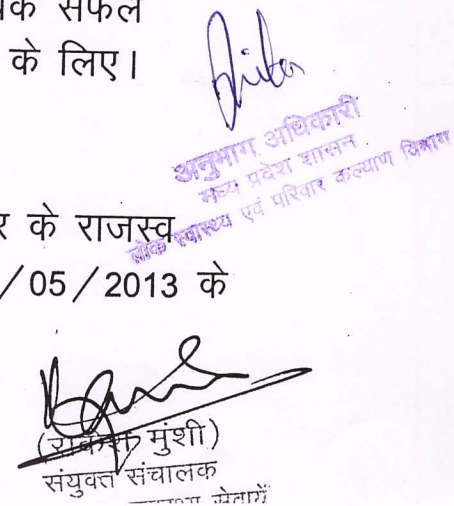 सफल
के लिए।
अनुभाग अधिकारी
मध्य प्रदेश शासन
लोक स्वास्थ्य एवं परिवार कल्याण विभाग
के राजस्व
/05/2013 के
(राकेश मुंशी)
संयुक्त संचालक